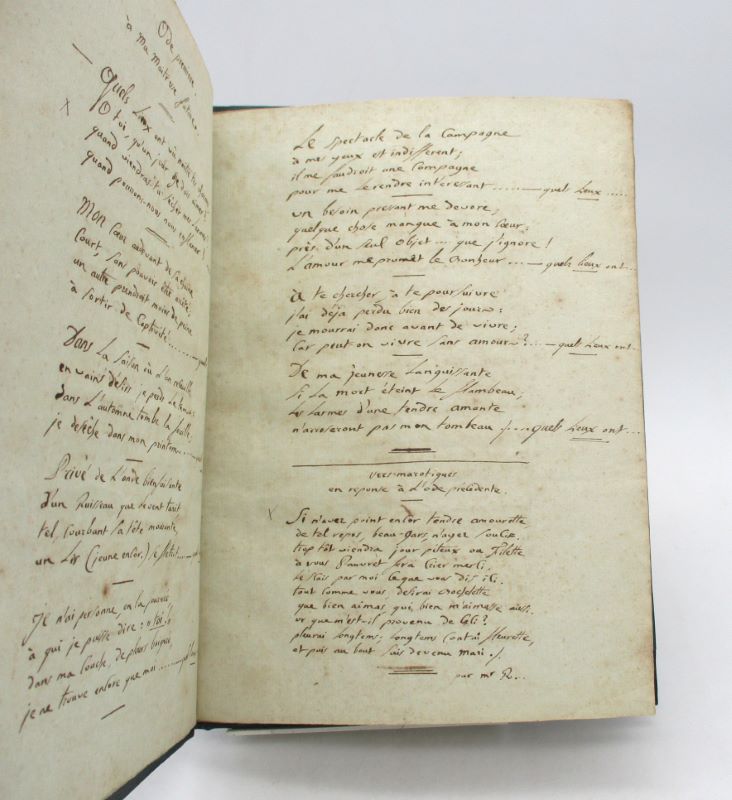 Ode premiere.
à ma maitresse future.
Quels Lieux ont vu naitre tes charmes
O toi, qu'un jour je dois aimer!
quand viendras-tu sécher mes larmes
quand pourrons-nous nous enflamer!
Mon Cœur au devant de sa chaine
Court, sans pouvoir être arrêté.
un autre prendroit moins de peine
à sortir de Captivité
Dans la saison où l'on
en vains désirs je perds
dans L'automne tombe la feuille,
je déseche dans mon printems
Privé de L'onde bienfaisante
d'un Ruisseau que le vent tarit
tel, courbant sa tête mourante,
un Lis (jeune encor.) se fletrit
Je n'ai personne, en la pensée
à qui je puisse dire: o toi!
dans ma Couche, de pleurs
je ne trouve encore que moi
Le spectacle de la Campagne
à mes yeux est indifferent;
il me faudroit une Compagne
pour me le rendre intéressant ......— quels Lieux .....
un besoin pressant me devore,
quelque chose manque à mon Cœur;
près d'un seul objet... que j'ignore!
L'amour me promet le Bonheur ...— quels Lieux ont...
à te chercher, à te poursuivre
j'ai déja perdu bien des jours:
je mourrai donc avant de vivre;
Car peut-on vivre sans amours? ...— quels Lieux ont...
De ma jeunesse Languissante
si la mort éteint le flambeau,
les larmes d'une tendre amante
n'arroseront pas mon tombeau !... quels Lieux ont...
vers marotiques
en reponse à L'ode précédente.
Si n'avez point encor tendre amourette
de tel repos, beau-Gars, n'ayez soulcie.
trop tôt viendra jour piteux ou fillette
à vous Pauvret fera crier merci.
le sais par moi ce que vous dis ici.
tout comme vous desirai
que bien aimas, qui bien m'aimasse aussi.
or que m'est-il provenu de Celi?
pleurai longtems; longtems contai fleurette,
et puis au bout suis devenu Mari ./.
par mr R...